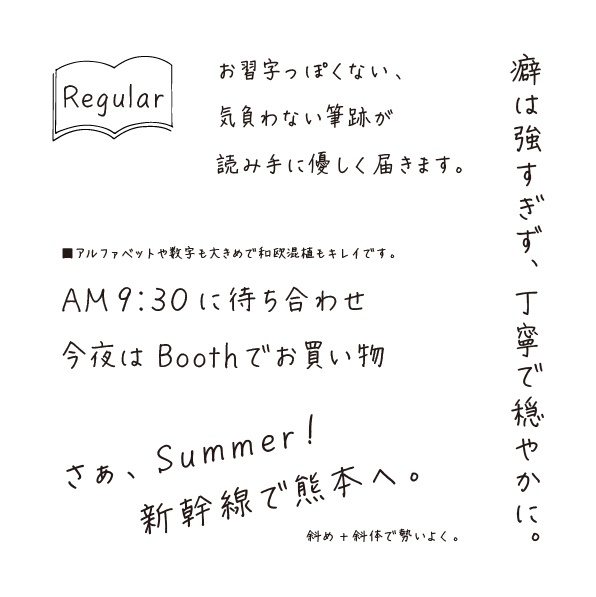 Regular
お習字っぽくない、
気負わない筆跡が
読み手に優しく届きます。
癖は強すぎず、丁寧で穏やかに。
■アルファベットや数字も大きめで和欧混植もキレイです。
AM9:30に待ち合わせ
今夜はBoothでお買い物
さぁ、Summer!
新幹線で熊本へ。
斜め+斜体で勢いよく。